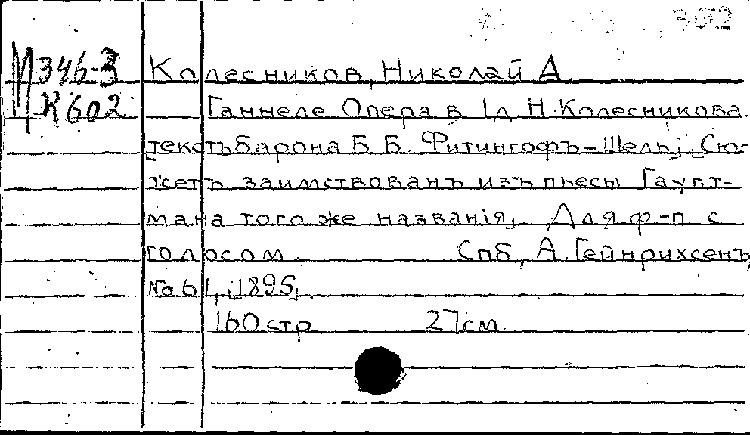 302
М346-3 Колесников, Николай А
К602 Ганнеле Опера в 1д Н. Колесникова.
текстъ барона Б. Б. Фитингофъ-Шель; Сю-
жетъ заимствованъ изъ пьесы Гаупт-
мана того же названія, Для ф-п с
голосом. Спб, А. Гейнрихсенъ,
№ 61, 1895,
160 стр 27 см.